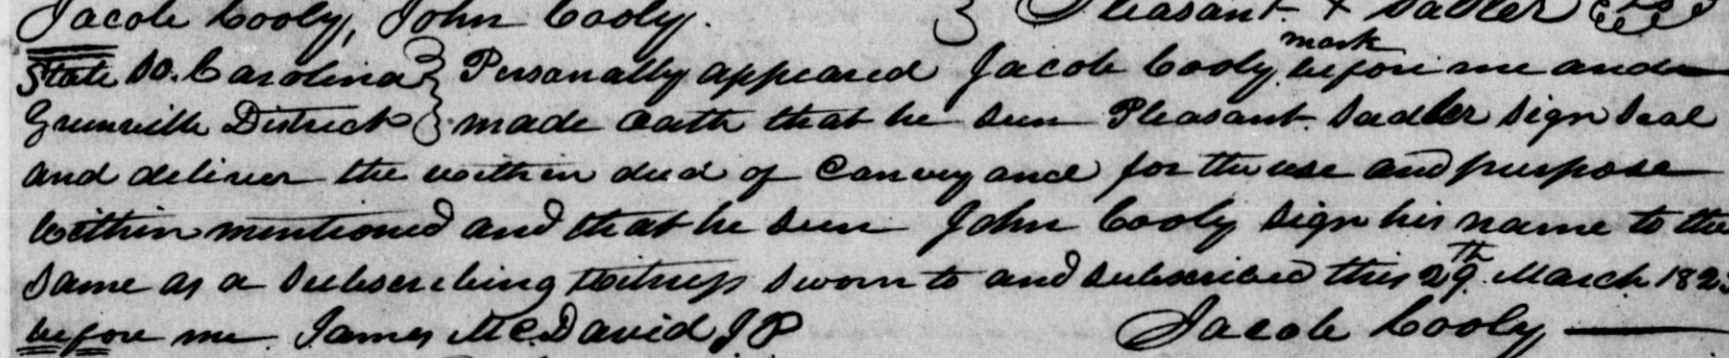 Jacob Cooly, John Cooly. } Pleasant + Sadler
mark
State So. Carolina } Personally appeared Jacob Cooly before me and
Greenville District } made oath that he seen Pleasant Sadler sign seal
and deliver the within deed of Conveyance for the use and purpose
within mentioned and that he seen John Cooly sign his name to the
same as a subscribing witness sworn to and subscribed this 29th March 182
before me James McDavid JP Jacob Cooly